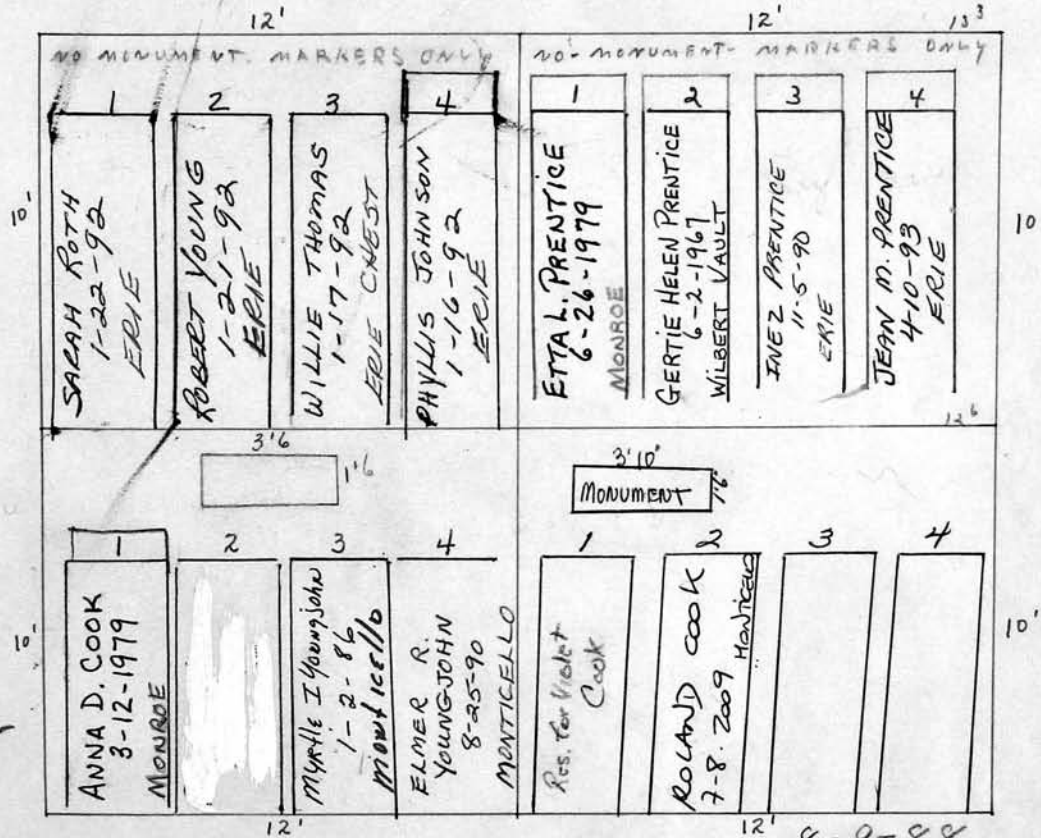 12'
12'
13 3
NO MONUMENT. MARKERS ONLY
NO-MONUMENT- MARKERS ONLY
1
2
3
4
1
2
3
4
SARAH ROTH
1-22-92
ERIE
ROBERT YOUNG
1-21-92
ERIE
WILLIE THOMAS
1-17-92
ERIE CHEST
PHYLLIS JOHNSON
1-16-92
ERIE
ETTA L. PRENTICE
6-26-1979
MONROE
GERTIE HELEN PRENTICE
6-2-1967
WILBERT VAULT
INEZ PRENTICE
11-5-90
ERIE
JEAN M. PRENTICE
4-10-93
ERIE
10'
10
12 6
3'6
1'6
3'10"
MONUMENT
1'6
1
2
3
4
1
2
3
4
ANNA D. COOK
3-12-1979
MONROE
Myrtle I Youngjohn
1-2-86
Monticello
ELMER R.
YOUNGJOHN
8-25-90
MONTICELLO
Res. For Violet
Cook
ROLAND COOK
7-8-2009
MONTICELLO
10'
10'
12'
12'